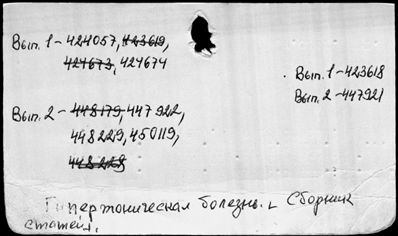 Вып. 1 - 424057, 423619,
424673, 424674
Вып. 2 - 448179, 447922,
448229, 450119,
448228
Вып. 1 - 423618
Вып. 2 - 447921
Гипертоническая болезнь. Сборник
статей.